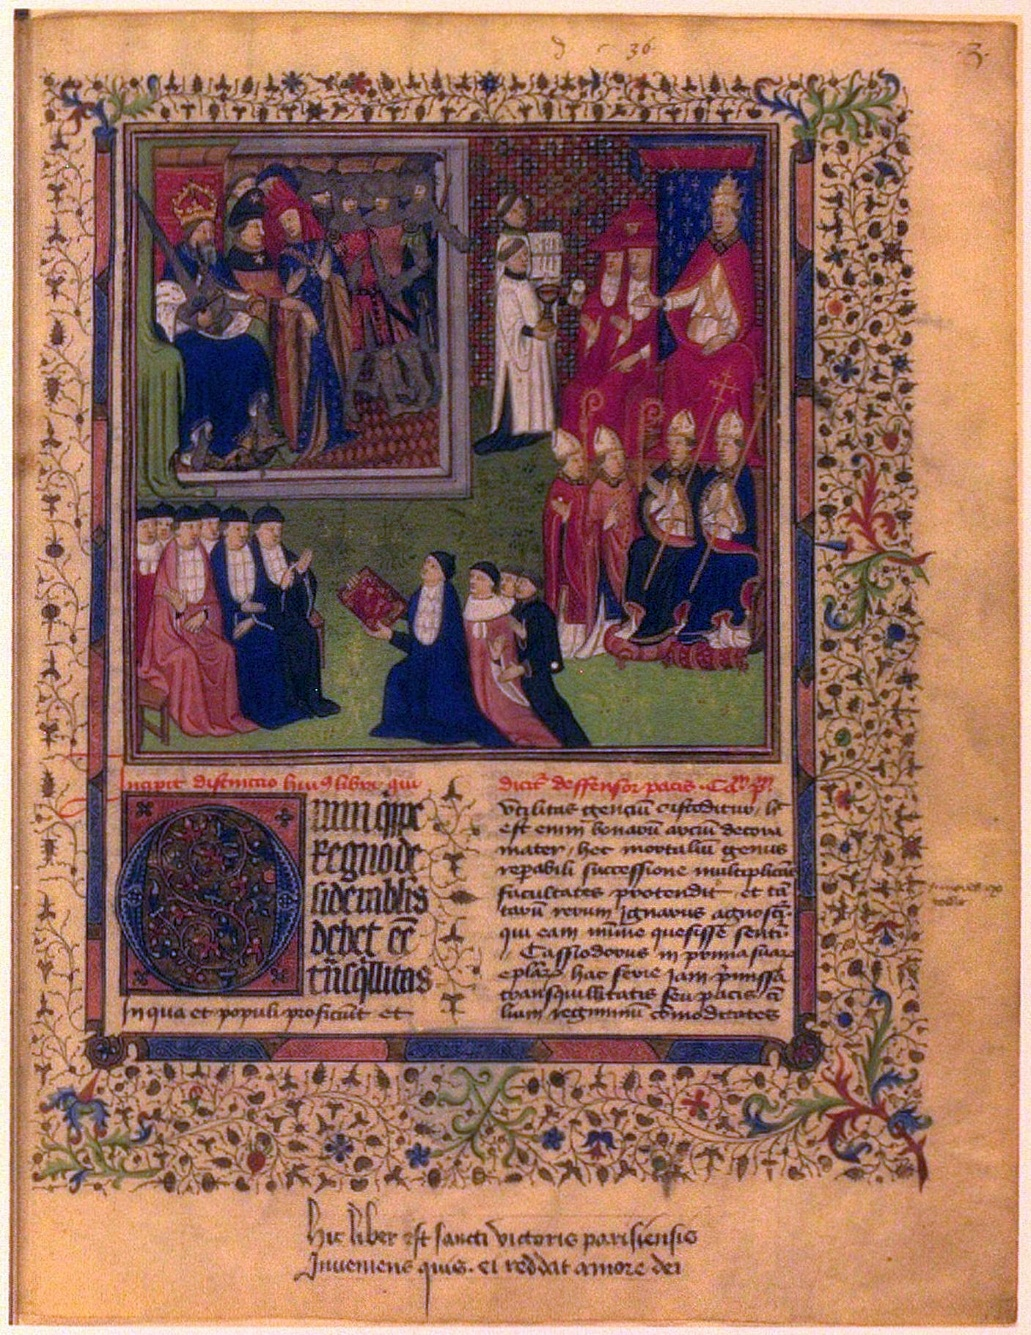 d 36
3.
Incipit distinctio huiꝯ libri qui
dicit̃ deffensor pacis. Cam̃ pm̃
Omni q̃ppe
Regno de
siderabilis
debet eẽ
tñqͥllitas
In qua et populi proficiũt et
vtilitas genciũ custoditur, hec
est enim bonarũ arciũ decora
mater, hec mortaliũ genus
reparabili successione multiplicãs
facultates protendit, et
tarũ rerum ignarus agnoscit̃.
qui eam mĩime quesisse sentit̃
Cassiodorus in prima suarum
ep̃laꝝ hac serie iam p̃missa
transquillitatis seu pacis, ci
lium regiminũ cõmoditates
hic liber est sancti victoris parisiensis
Inueniens quis. ei reddat amore dei